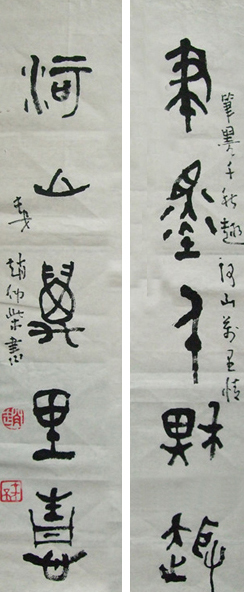 聿墨千秋趣
筆墨千秋趣 河山萬里情
河山萬里情
趙仲榮書